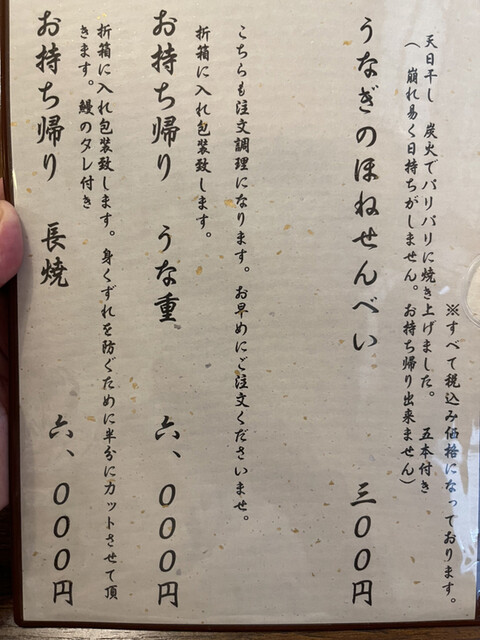 ※すべて税込み価格になっております。
天日干し　炭火でパリパリに焼き上げました。　五本付き
（　崩れ易く日持ちがしません。お持ち帰り出来ません）
うなぎのほねせんべい　三００円
こちらも注文調理になります。お早めにご注文くださいませ。
折箱に入れ包装致します。
お持ち帰り　うな重　六、０００円
折箱に入れ包装致します。身くずれを防ぐために半分にカットさせて頂
きます。鰻のタレ付き
お持ち帰り　長焼　六、０００円